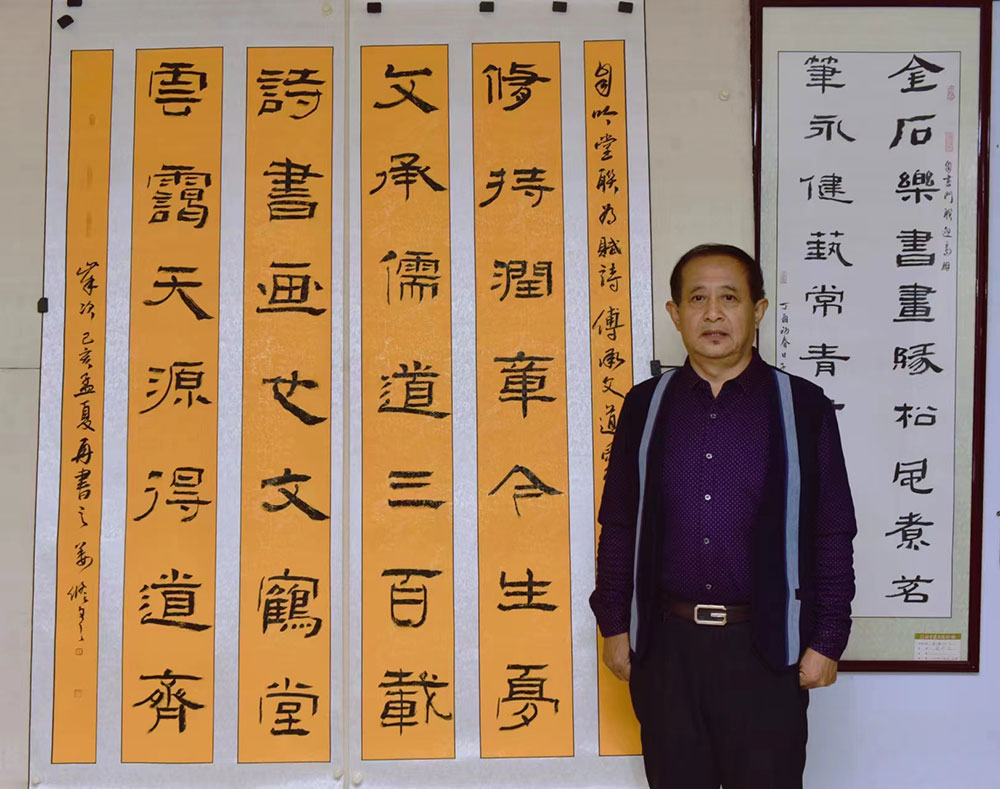 金石樂書畫松風煮茗
筆永健藝常青
丁酉初春日
自吟堂聯為賦詩 傅承文道
脩持潤章今生
文承儒道三百載
詩書画也文鶴堂
雲靄天源得道齊
己亥孟夏再書之 姜